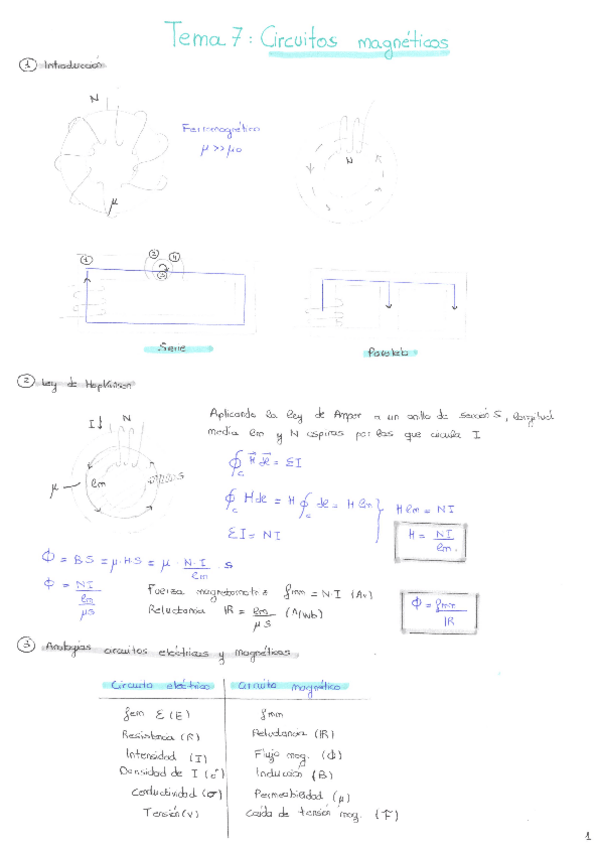 Tema 7: Circuitos magnéticos
① Introducción
N
Ferromagnético
μ >> μ0
N
μ
① ② ③ ④
Serie
Paralelo
② Ley de Hopkinson
I↓ N
Aplicando la ley de Amper a un anillo de sección S, longitud
media lm y N espiras por las que circula I
μ lm S
∮c H dl = ΣI
∮c H dl = H ∮c dl = H lm
ΣI = NI
H lm = NI
H = NI / lm.
Φ = BS = μ·H·S = μ · N·I / lm · S
Φ = NI / (lm / μS)
Fuerza magnetomotriz fmm = N·I (Av)
Reluctancia IR = lm / μS (A/Wb)
Φ = fmm / IR
③ Analogías circuitos eléctricos y magnéticos
Circuito eléctrico | Circuito magnético
fem Ɛ (E) | fmm
Resistencia (R) | Reluctancia (IR)
Intensidad (I) | Flujo mag. (Φ)
Densidad de I (J) | Inducción (B)
Conductividad (σ) | Permeabilidad (μ)
Tensión (V) | Caída de tensión mag. (F)
1